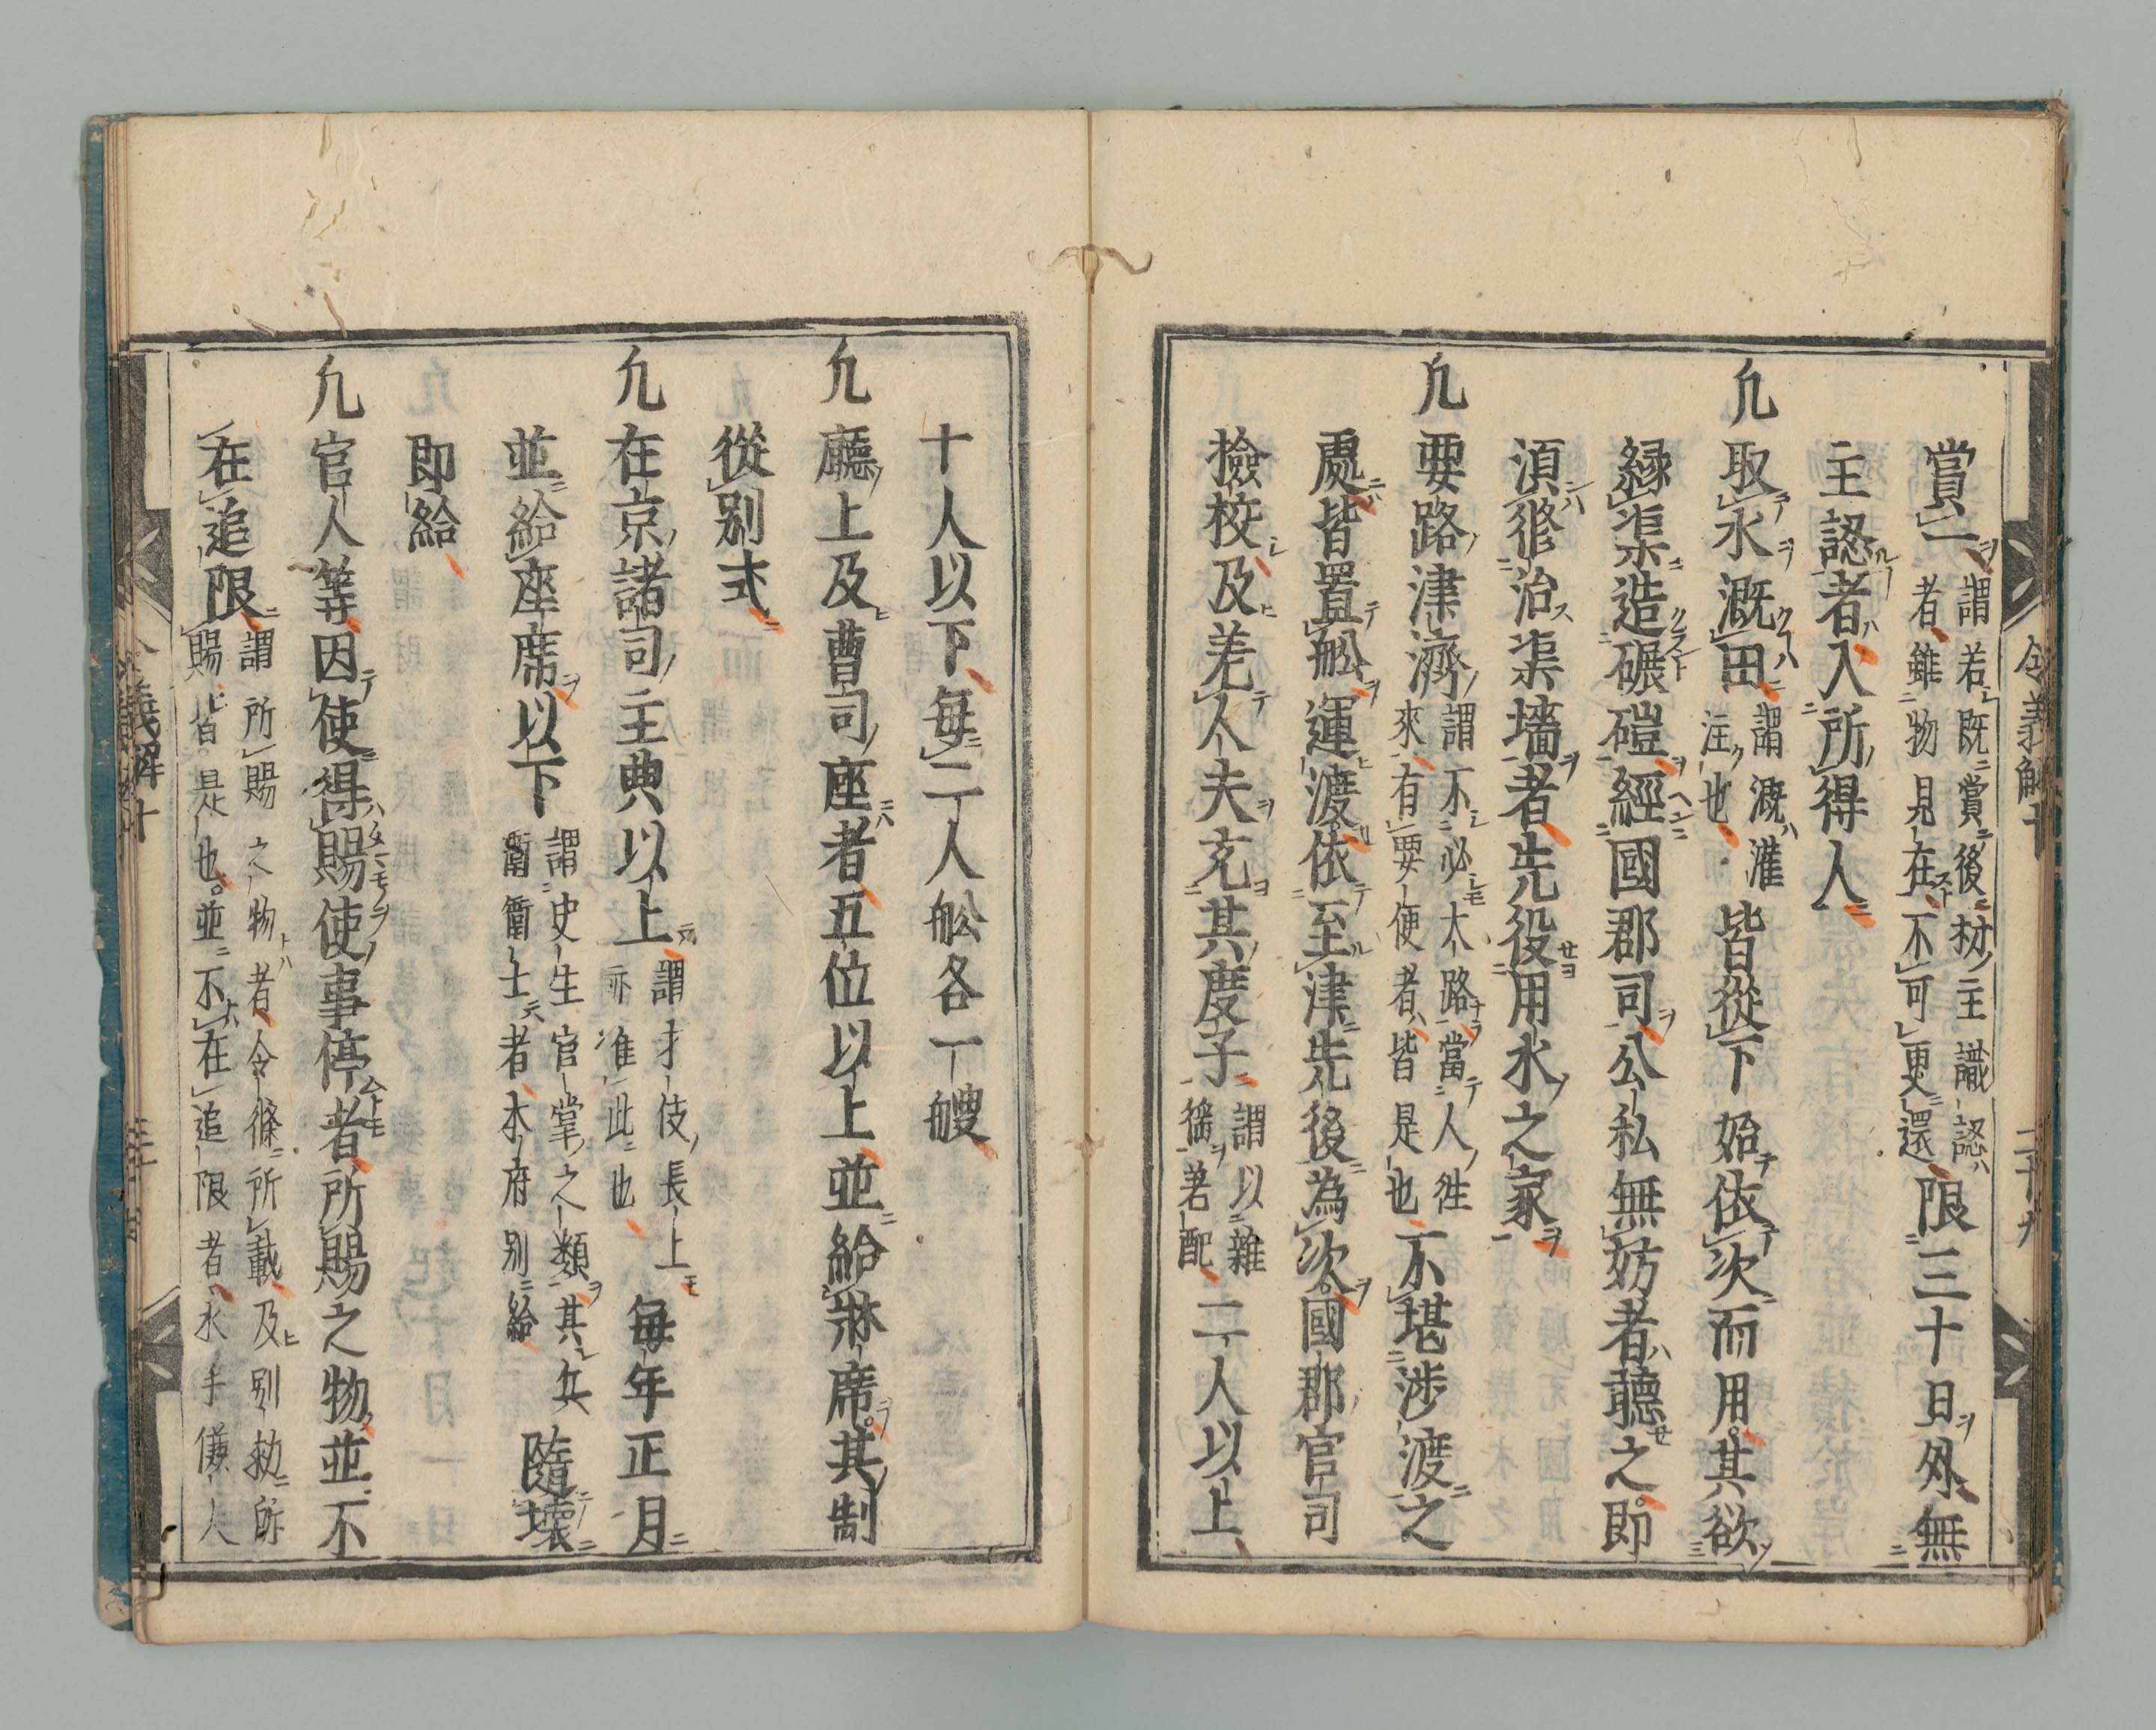 賞一 謂若既賞後材主識認
者雖物見在不可更還 限三十日外無
主認者入所得人
凢取水漑田 謂漑灌
注也 皆從下始依次而用其欲
緣渠造碾磑經國郡司公私無妨者聽之即
湏脩治渠墻者先役用水之家
凢要路津濟 謂不必大路當人往
來有要便者皆是也 不堪涉渡之
處皆置舩運渡依至津先後為次國郡官司
撿校及差人夫充其度子 謂以雜
徭差配 二人以上
十人以下毎二人舩各一艘
凢廳上及曹司座者五位以上並給牀席其制
從別式
凢在京諸司主典以上 謂才伎長上
亦准此也 毎年正月
並給座席以下 謂史生官掌之類其兵
衛衛士者本府別給 隨壞
即給
凢官人等因使得賜使事停者所賜之物並不
在追限 謂所賜之物者令條所載及別勑所
賜皆是也並不在追限者水手傔人
令義解十
二十九